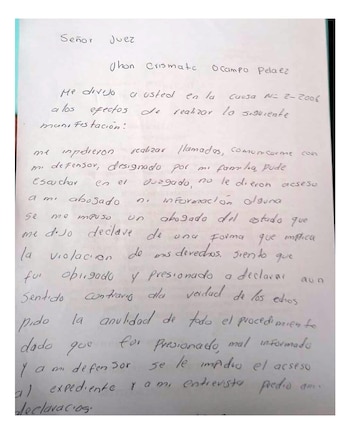 Señor Juez
Jhon Crismatt Ocampo Pelaez
Me dirijo a usted en la causa N: 2-2006
a los efectos de realizar la siguiente
manifestación:
me inpidieron realizar llamados, comunicarme con
mi defensor, designado por mi familia, pude
Escuchar en el Juzgado, no le dieron acseso
a mi abogado ni información alguna
se me impuso un abogado del estado que
me dijo declare de una forma que implica
la violación de mis derechos. siento que
fui obligado y presionado a declarar a un
sentido contrario ala verdad de los echos
pido la anulidad de todo el procedimiento
dado que fui presionado, mal informado
y a mi defensor se le impidio el acseso
al expediente y a mi entrevista previo a mi
declaracion.